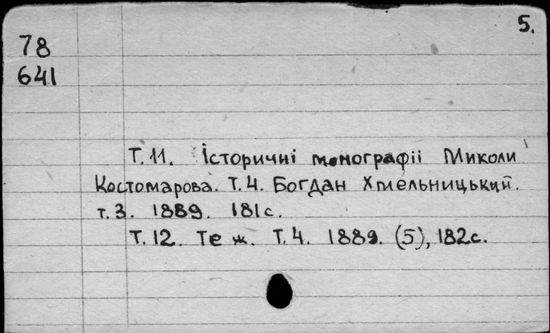 5.
78
641
Т. 11. Історичні монографіі Миколи
Костомарова. Т. 4. Богдан Хмельницький.
т. 3. 1889. 181 с.
Т. 12. Те ж. Т. 4. 1889. (5), 182 с.